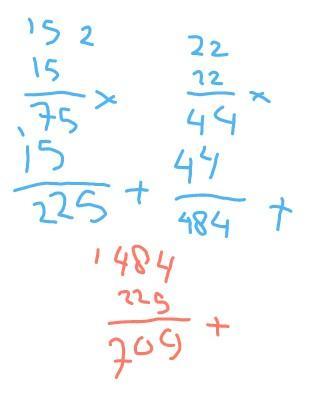 15 2
15
75 ×
15
225 +
22
22
44 ×
44
484 +
1 484
225
709 +